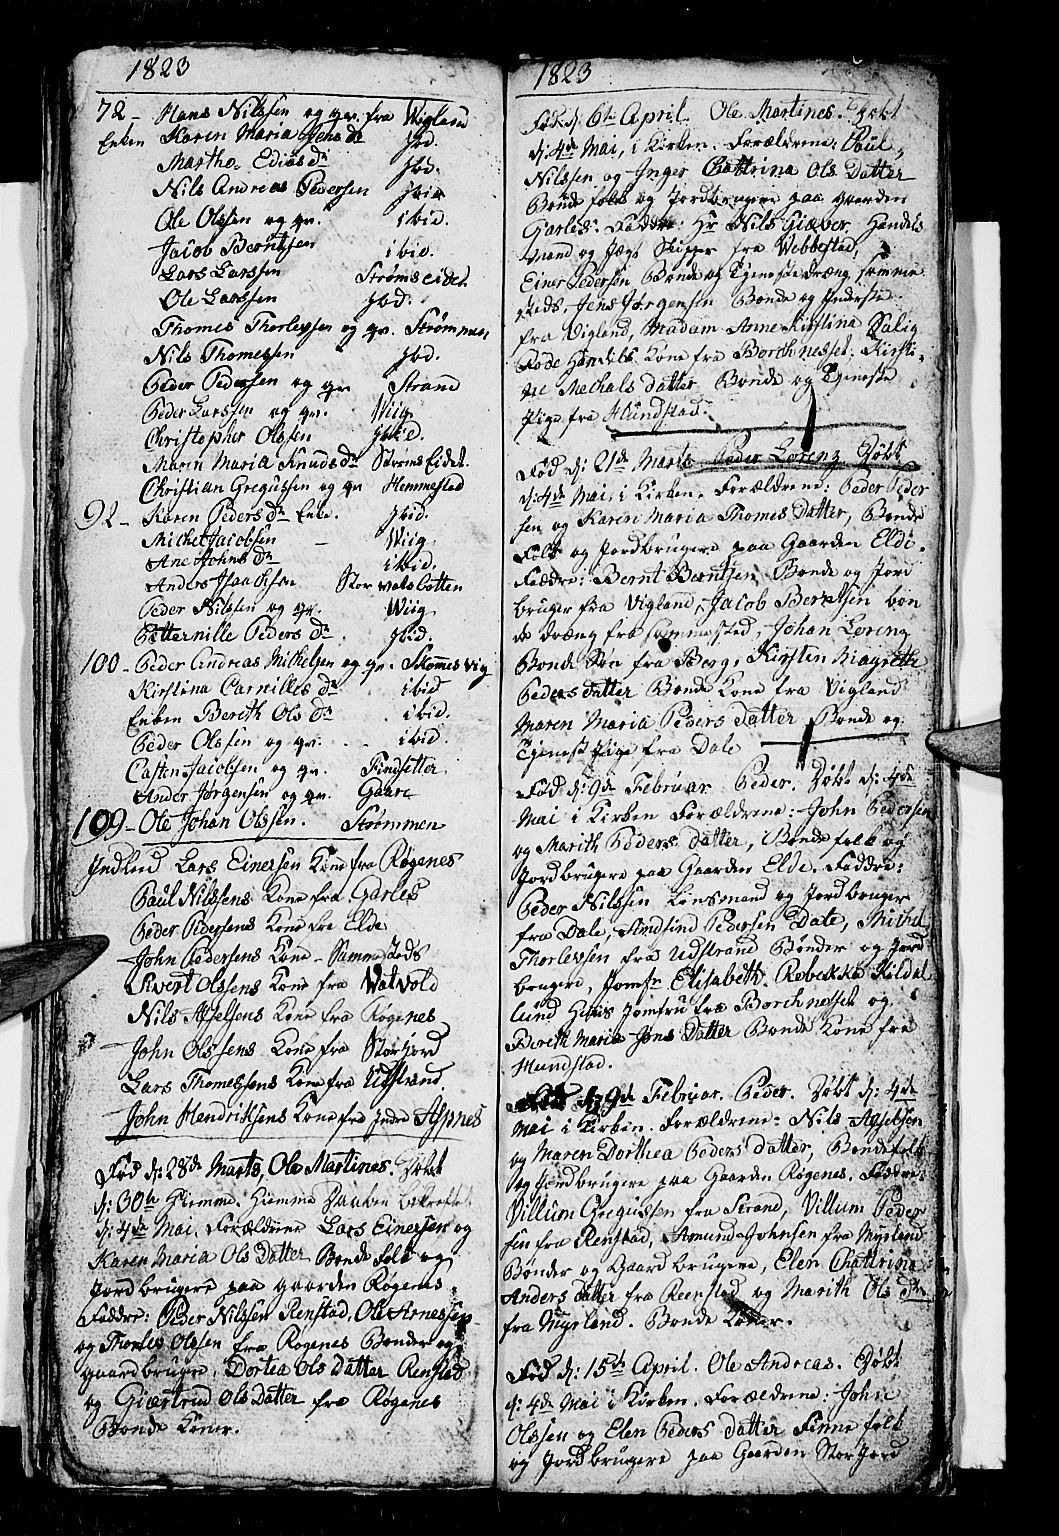 1823
72 - Hans Nilssen og qv. fra Wigland
Enken Karen Maria Jens dr Ibd.
Martha Edias dr Ibd.
Nils Andreas Pedersen Ibid
Ole Olssen og qv. ibid.
Jacob Berntsen ibid.
Lars Larssen Strømseidet
Ole Larssen Ibd.
Thomes Thorlevsen og qv. Strømmen
Nils Thomessen Ibd.
Peder Pedersen og qv Strand
Peder Larssen og qv. Wiig
Christopher Olssen Ibid.
Maren Maria Knuds dr Strøms Eidet.
Christian Gregussen og qv Hemmestad
92 - Karen Peders dr Enke. Ibid.
Michel Jacobsen - Wiig
Ane Johns dr ibid.
Anders Isaachsen Storvalsbotten
Peder Nilssen og qv. Wiig
Petternille Peders dr. Ibid.
100 - Peder Andreas Mikelsen og qv. Skomesvig
Kirstina Carnilles dr ibid
Enken Bereth Ols dr ibid.
Peder Olssen og qv. ibid.
Casten Jacobsen og qv. Findsetter
Ander Jørgensen og qv. Gaare
109 - Ole Johan Olssen. Strømmen
Indled Lars Einersen Kone fra Røgenes
Paul Nilssens Kone fra Garles
Peder Pedersens Kone fra Elde
John Pedersens Kone - Sammesteds
Sivert Olssens Kone fra Valvold
Nils Axselsens Kone fra Røgenes
John Olssens Kone fra Storjord
Lars Thomessens Kone fra Udstrand
John Hendriksens Kone fra Indre Aspnes
Fød d: 28de Marts, Ole Martines. Døbt
d: 30te Hiemme, Hiemme Daaben bekreftet
d: 4de Mai, Forældrene Lars Einersen og
Karen Maria Ols Datter Bonde folk og
Jordbrugere paa gaarden Røgenes
Faddre: Peder Nilssen Renstad, Ole Arnessen
og Thorles Olssen fra Røgenes Bonder og
gaardbrugere, Dortea Ols Datter Renstad
og Giærtrud Ols Datter fra Røgenes
Bonde Koner.
1823
Fød d. 6te April. Ole Martines. Døbt
d: 4de Mai, i Kirken. Forældrene: Paul
Nilssen og Inger Cattrina Ols Datter
Bonde folk og Jordbrugere paa gaarden
Garles. Faddre: Hr Nils Giæver, Handels
mand og Jægt Skipper fra Webbestad,
Einer Pedersen Bonde og Tjeneste Dræng samme
steds, Jens Jørgensen Bonde og Inderste
fra Vigland, Madam Anne Kirstina Salig
Rode Handels Kone fra Borchnesset, Kirsti-
ne Mechals datter Bonde og Tjeneste
Pige fra Hundstad.
Fød d: 21de Marts Peder Lorenz Døbt
d: 4de Mai, i Kirken. Forældrene: Peder Peder
sen og Karen Maria Thomes Datter, Bonde
Folk og Jordbrugere paa Gaarden Elde.
Faddre: Bernt Berntsen Bonde og Jord
bruger fra Vigland, Jacob Berntsen bon
de dræng fra sammested, Johan Lorenz
Bonde Søn fra Berg, Kirsten Magrethe
Peders datter Bonde Kone fra Vigland
Maren Maria Peders Datter Bonde og
Tjeneste Pige fra Dale
Fød d: 9de Februar Peder. Døbt d: 4de
Mai i Kirken Forældrene: John Pedersen
og Marith Peders Datter, Bonde folk og
Jordbrugere paa Gaarden Elde. Faddre:
Peder Nilssen Lensmand og Jordbruger
fra Dale, Amsind Pedersen Dale, Michel
Thorlevsen fra Udstrand Bønder og Jord
brugere, Jomfr Elisabeth Rebekka Hildal
lund Huus Jomfru fra Borchnesset og
Bereth Maria Jons Datter Bonde Kone fra
Hundstad.
Fød d: 9de Februar. Peder. Døbt d: 4de
Mai i Kirken. Forældrene: Nils Axselsen
og Maren Dorthea Peders Datter, Bondefolk
og Jordbrugere paa Gaarden Røgenes. Faddre:
Villum Gregussen fra Strand, Villum Peder
sen fra Renstad, Asmund Johnsen fra Myrland
Bønder og Gaardbrugere, Elen Chattrina
Anders datter fra Reenstad og Marith Ols Dr
fra Myrland. Bonde Koner.
Fød d: 15de April. Ole Andreas. Døbt
d: 4de Mai i Kirken. Forældrene: John
Olssen og Elen Peders Datter Finne folk
og Jordbrugere paa Gaarden StorJord